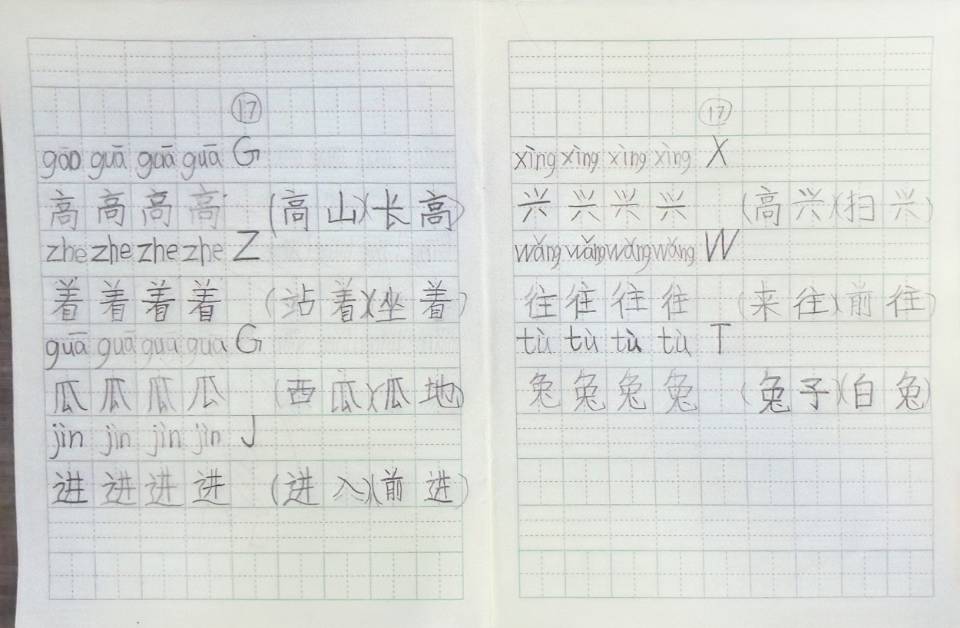 17
gāo guā guā guā G
高 高 高 高 (高 山)(长 高)
zhe zhe zhe zhe Z
着 着 着 着 (站 着)(坐 着)
guā guā guā gua G
瓜 瓜 瓜 瓜 (西 瓜)(瓜 地)
jìn jìn jìn jìn J
进 进 进 进 (进 入)(前 进)
17
xìng xìng xìng xìng X
兴 兴 兴 兴 (高 兴)(扫 兴)
wǎng wǎng wǎng wǎng W
往 往 往 往 (来 往)(前 往)
tù tù tù tù T
兔 兔 兔 兔 (兔 子)(白 兔)